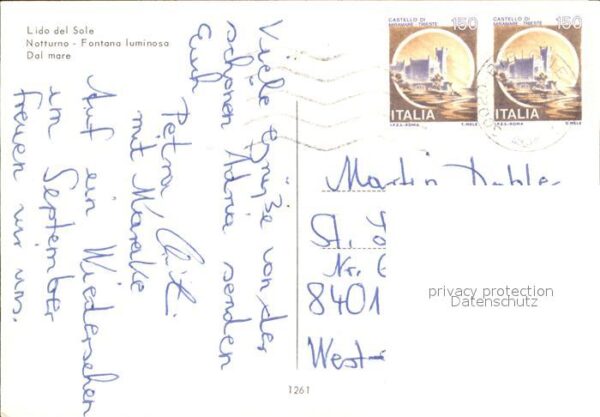 Lido del Sole
Notturno - Fontana luminosa
Dal mare
CASTELLO DI
MIRAMARE - TRIESTE
150
ITALIA
I.P.Z.S. - ROMA
E. MELE
CASTELLO DI
MIRAMARE - TRIESTE
150
ITALIA
I.P.Z.S. - ROMA
E. MELE
Viele Grüße von der
schönen Adria senden
Euch
Petra
mit
Auf ein Wiedersehen
im September
freuen wir uns.
Martin
St.
Nr.
8401
West-
privacy protection
Datenschutz
1261